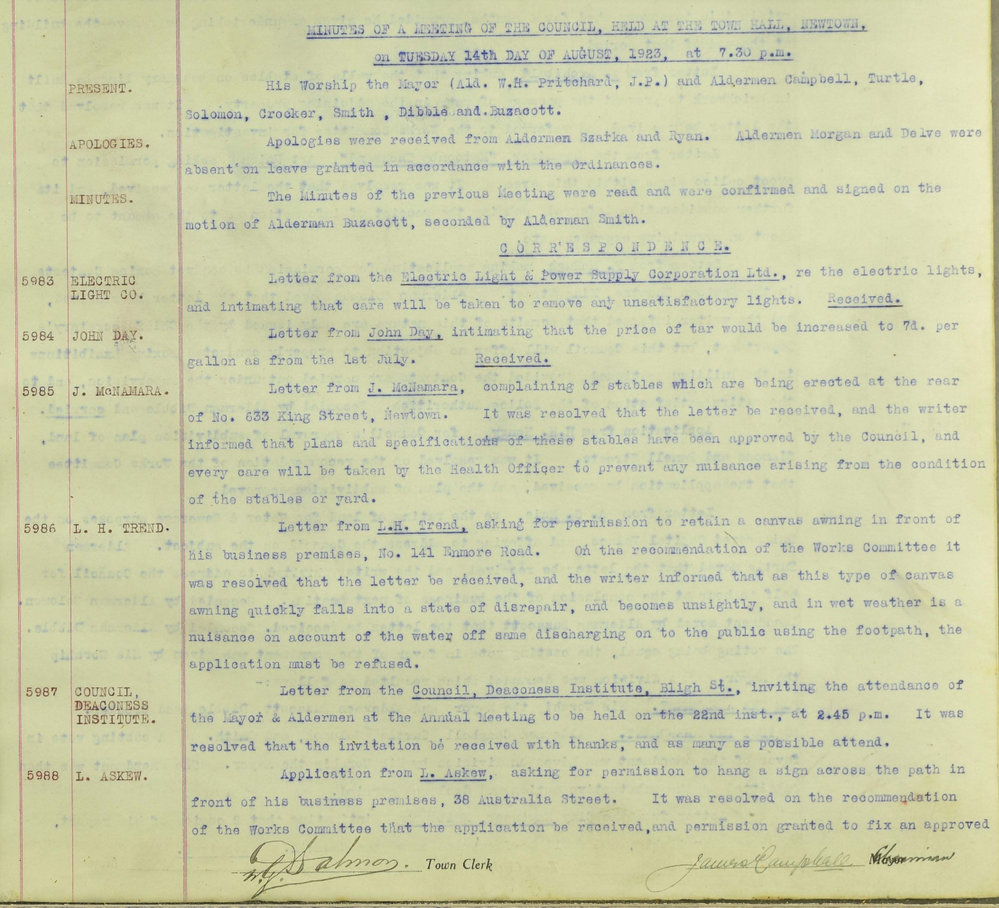 MINUTES OF A MEETING OF THE COUNCIL, HELD AT THE TOWN HALL, NEWTOWN,
on TUESDAY 14th DAY OF AUGUST, 1923, at 7.30 p.m.
PRESENT. His Worship the Mayor (Ald. W.H. Pritchard, J.P.) and Aldermen Campbell, Turtle,
Solomon, Crocker, Smith , Dibble and Buzacott.
APOLOGIES. Apologies were received from Aldermen Szarka and Ryan. Aldermen Morgan and Delve were
absent on leave granted in accordance with the Ordinances.
MINUTES. The Minutes of the previous Meeting were read and were confirmed and signed on the
motion of Alderman Buzacott, seconded by Alderman Smith.
CORRESPONDENCE.
5983 ELECTRIC Letter from the Electric Light & Power Supply Corporation Ltd., re the electric lights,
LIGHT CO. and intimating that care will be taken to remove any unsatisfactory lights. Received.
5984 JOHN DAY. Letter from John Day, intimating that the price of tar would be increased to 7d. per
gallon as from the 1st July. Received.
5985 J. McNAMARA. Letter from J. McNAMARA, complaining of stables which are being erected at the rear
of No. 633 King Street, Newtown. It was resolved that the letter be received, and the writer
informed that plans and specifications of these stables have been approved by the Council, and
every care will be taken by the Health Officer to prevent any nuisance arising from the condition
of the stables or yard.
5986 L. H. TREND. Letter from L.H. Trend, asking for permission to retain a canvas awning in front of
his business premises, No. 141 Enmore Road. On the recommendation of the Works Committee it
was resolved that the letter be received, and the writer informed that as this type of canvas
awning quickly falls into a state of disrepair, and becomes unsightly, and in wet weather is a
nuisance on account of the water off same discharging on to the public using the footpath, the
application must be refused.
5987 COUNCIL, Letter from the Council, Deaconess Institute, Bligh St., inviting the attendance of
DEACONESS
INSTITUTE. the Mayor & Aldermen at the Annual Meeting to be held on the 22nd inst., at 2.45 p.m. It was
resolved that the invitation be received with thanks, and as many as possible attend.
5988 L. ASKEW. Application from L. Askew, asking for permission to hang a sign across the path in
front of his business premises, 38 Australia Street. It was resolved on the recommendation
of the Works Committee that the application be received, and permission granted to fix an approved
Salmon. Town Clerk James Campbell Chairman